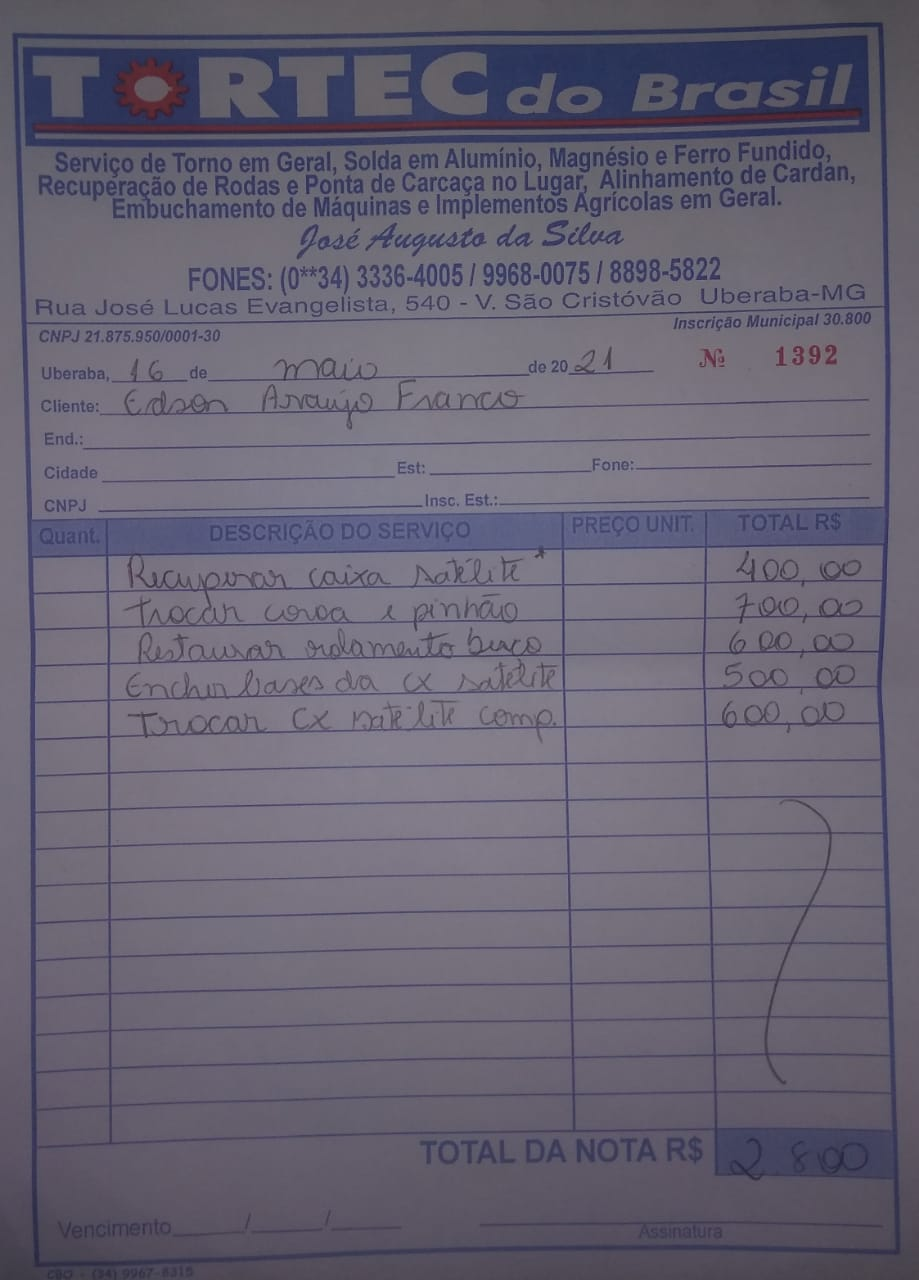 TORTEC do Brasil
Serviço de Torno em Geral, Solda em Alumínio, Magnésio e Ferro Fundido,
Recuperação de Rodas e Ponta de Carcaça no Lugar, Alinhamento de Cardan,
Embuchamento de Máquinas e Implementos Agrícolas em Geral.
José Augusto da Silva
FONES: (0**34) 3336-4005 / 9968-0075 / 8898-5822
Rua José Lucas Evangelista, 540 - V. São Cristóvão Uberaba-MG
CNPJ 21.875.950/0001-30 Inscrição Municipal 30.800
Uberaba, 16 de maio de 20 21 Nº 1392
Cliente: Edson Araujo Franco
End.:
Cidade Est: Fone:
CNPJ Insc. Est.:
Quant. DESCRIÇÃO DO SERVIÇO PREÇO UNIT. TOTAL R$
Recuperar caixa satélite * 400,00
Trocar coroa e pinhão 700,00
Restaurar rolamento 600,00
Encher bases da cx satélite 500,00
Trocar cx satélite comp. 600,00
TOTAL DA NOTA R$ 2 800
Vencimento / /
Assinatura
(34) 9967-8315